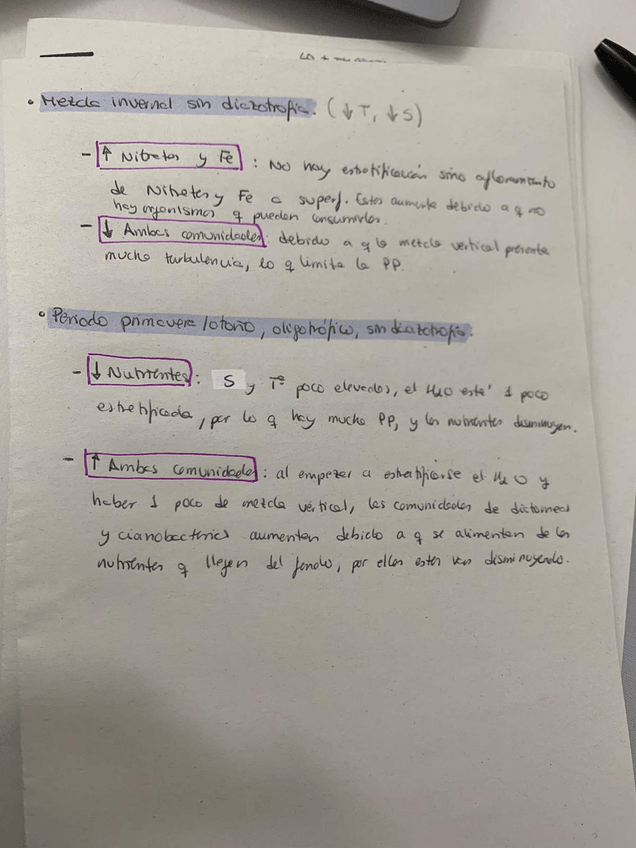 • Mezcla invernal sin diazotrofia. (↓T, ↓S)
- ↑ Nitratos y Fe : No hay estratificación sino afloramiento
de Nitratos y Fe a superf. Estos aumenta debido a q no
hay organismos q puedan consumirlos.
- ↓ Ambas comunidades: debido a q la mezcla vertical presenta
mucha turbulencia, lo q limita la PP.
• Periodo primavera/otoño, oligotrófico, sin diazotrofia.
- ↓ Nutrientes : S y Tª poco elevados, el H₂O está 1 poco
estratificada, por lo q hay mucha PP, y los nutrientes disminuyen.
- ↑ Ambas comunidades : al empezar a estratificarse el H₂O y
haber 1 poco de mezcla vertical, las comunidades de diatomeas
y cianobacterias aumentan debido a q se alimentan de los
nutrientes q llegan del fondo, por ello estos van disminuyendo.